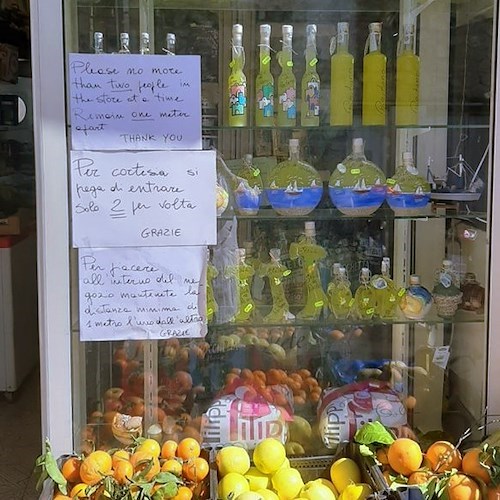 Please no more
than two people in
the store at a time
Remain one meter
apart
THANK YOU
Per cortesia si
prega di entrare
solo 2 per volta
GRAZIE
Per piacere
all'interno del ne-
gozio mantenete la
distanza minima di
1 metro l'uno dall'altro
GRAZIE